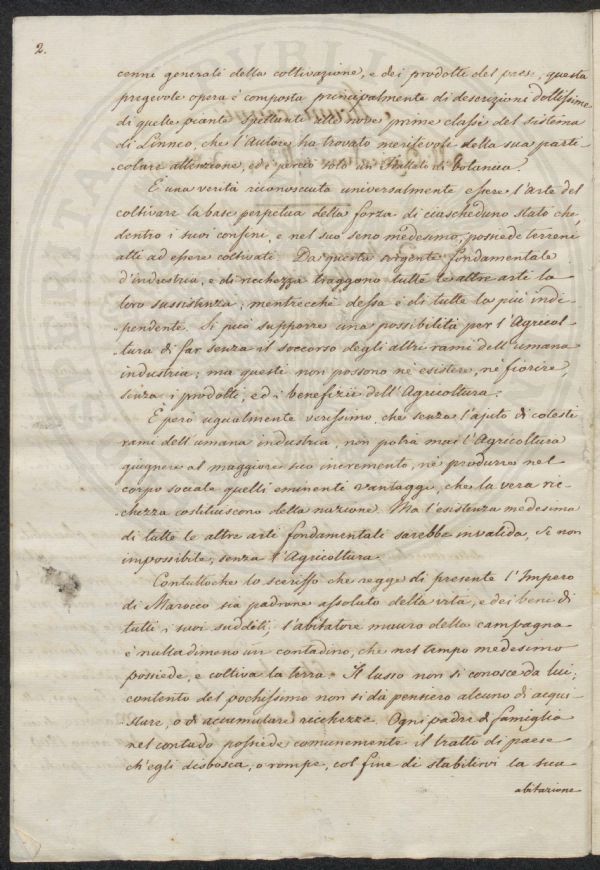 2.
cenni generali della coltivazione, e dei prodotti del paese, questa
pregevole opera è composta principalmente di descrizioni dottissime
di quelle piante spettanti alle nove prime classi del sistema
di Linneo, che l'Autore ha trovato meritevole della sua parti-
-colare attenzione, ed è perciò solo un Trattato di botanica.
È una verità riconosciuta universalmente essere l'Arte del
coltivare la base perpetua della forza di ciascheduno stato che,
dentro i suoi confini, e nel suo seno medesimo, possiede terreni
atti ad essere coltivati. Da questa sorgente fondamentale
d'industria, e di ricchezza traggono tutte le altre arti la
loro sussistenza; mentrecchè dessa è di tutte la più indi-
-pendente. Si può supporre una possibilità per l'Agricol-
-tura di far senza il soccorso degli altri rami dell'umana
industria; ma questi non possono nè esistere, nè fiorire,
senza i prodotti, ed i benefizii dell'Agricoltura.
È però ugualmente verissimo, che senza l'ajuto di cotesti
rami dell'umana industria, non potrà mai l'Agricoltura
giugnere al maggiore suo incremento, nè produrre nel
corpo sociale quelli eminenti vantaggi, che la vera ric-
-chezza costituiscono della nazione. Ma l'esistenza medesima
di tutte le altre arti fondamentali sarebbe invalida, se non
impossibile, senza l'Agricoltura.
Contuttochè lo sceriffo che regge di presente l'Impero
di Marocco sia padrone assoluto della vita, e dei beni di
tutti i suoi sudditi, l'abitatore mauro della campagna
è nulladimeno un contadino, che nel tempo medesimo
possiede, e coltiva la terra. Il lusso non si conosce da lui;
contento del pochissimo non si dà pensiero alcuno di acqui-
-stare, o di accumulare ricchezze. Ogni padre di famiglia
nel contado possiede comunemente il tratto di paese
ch'egli disbosca, o rompe, col fine di stabilirvi la sua
abitazione